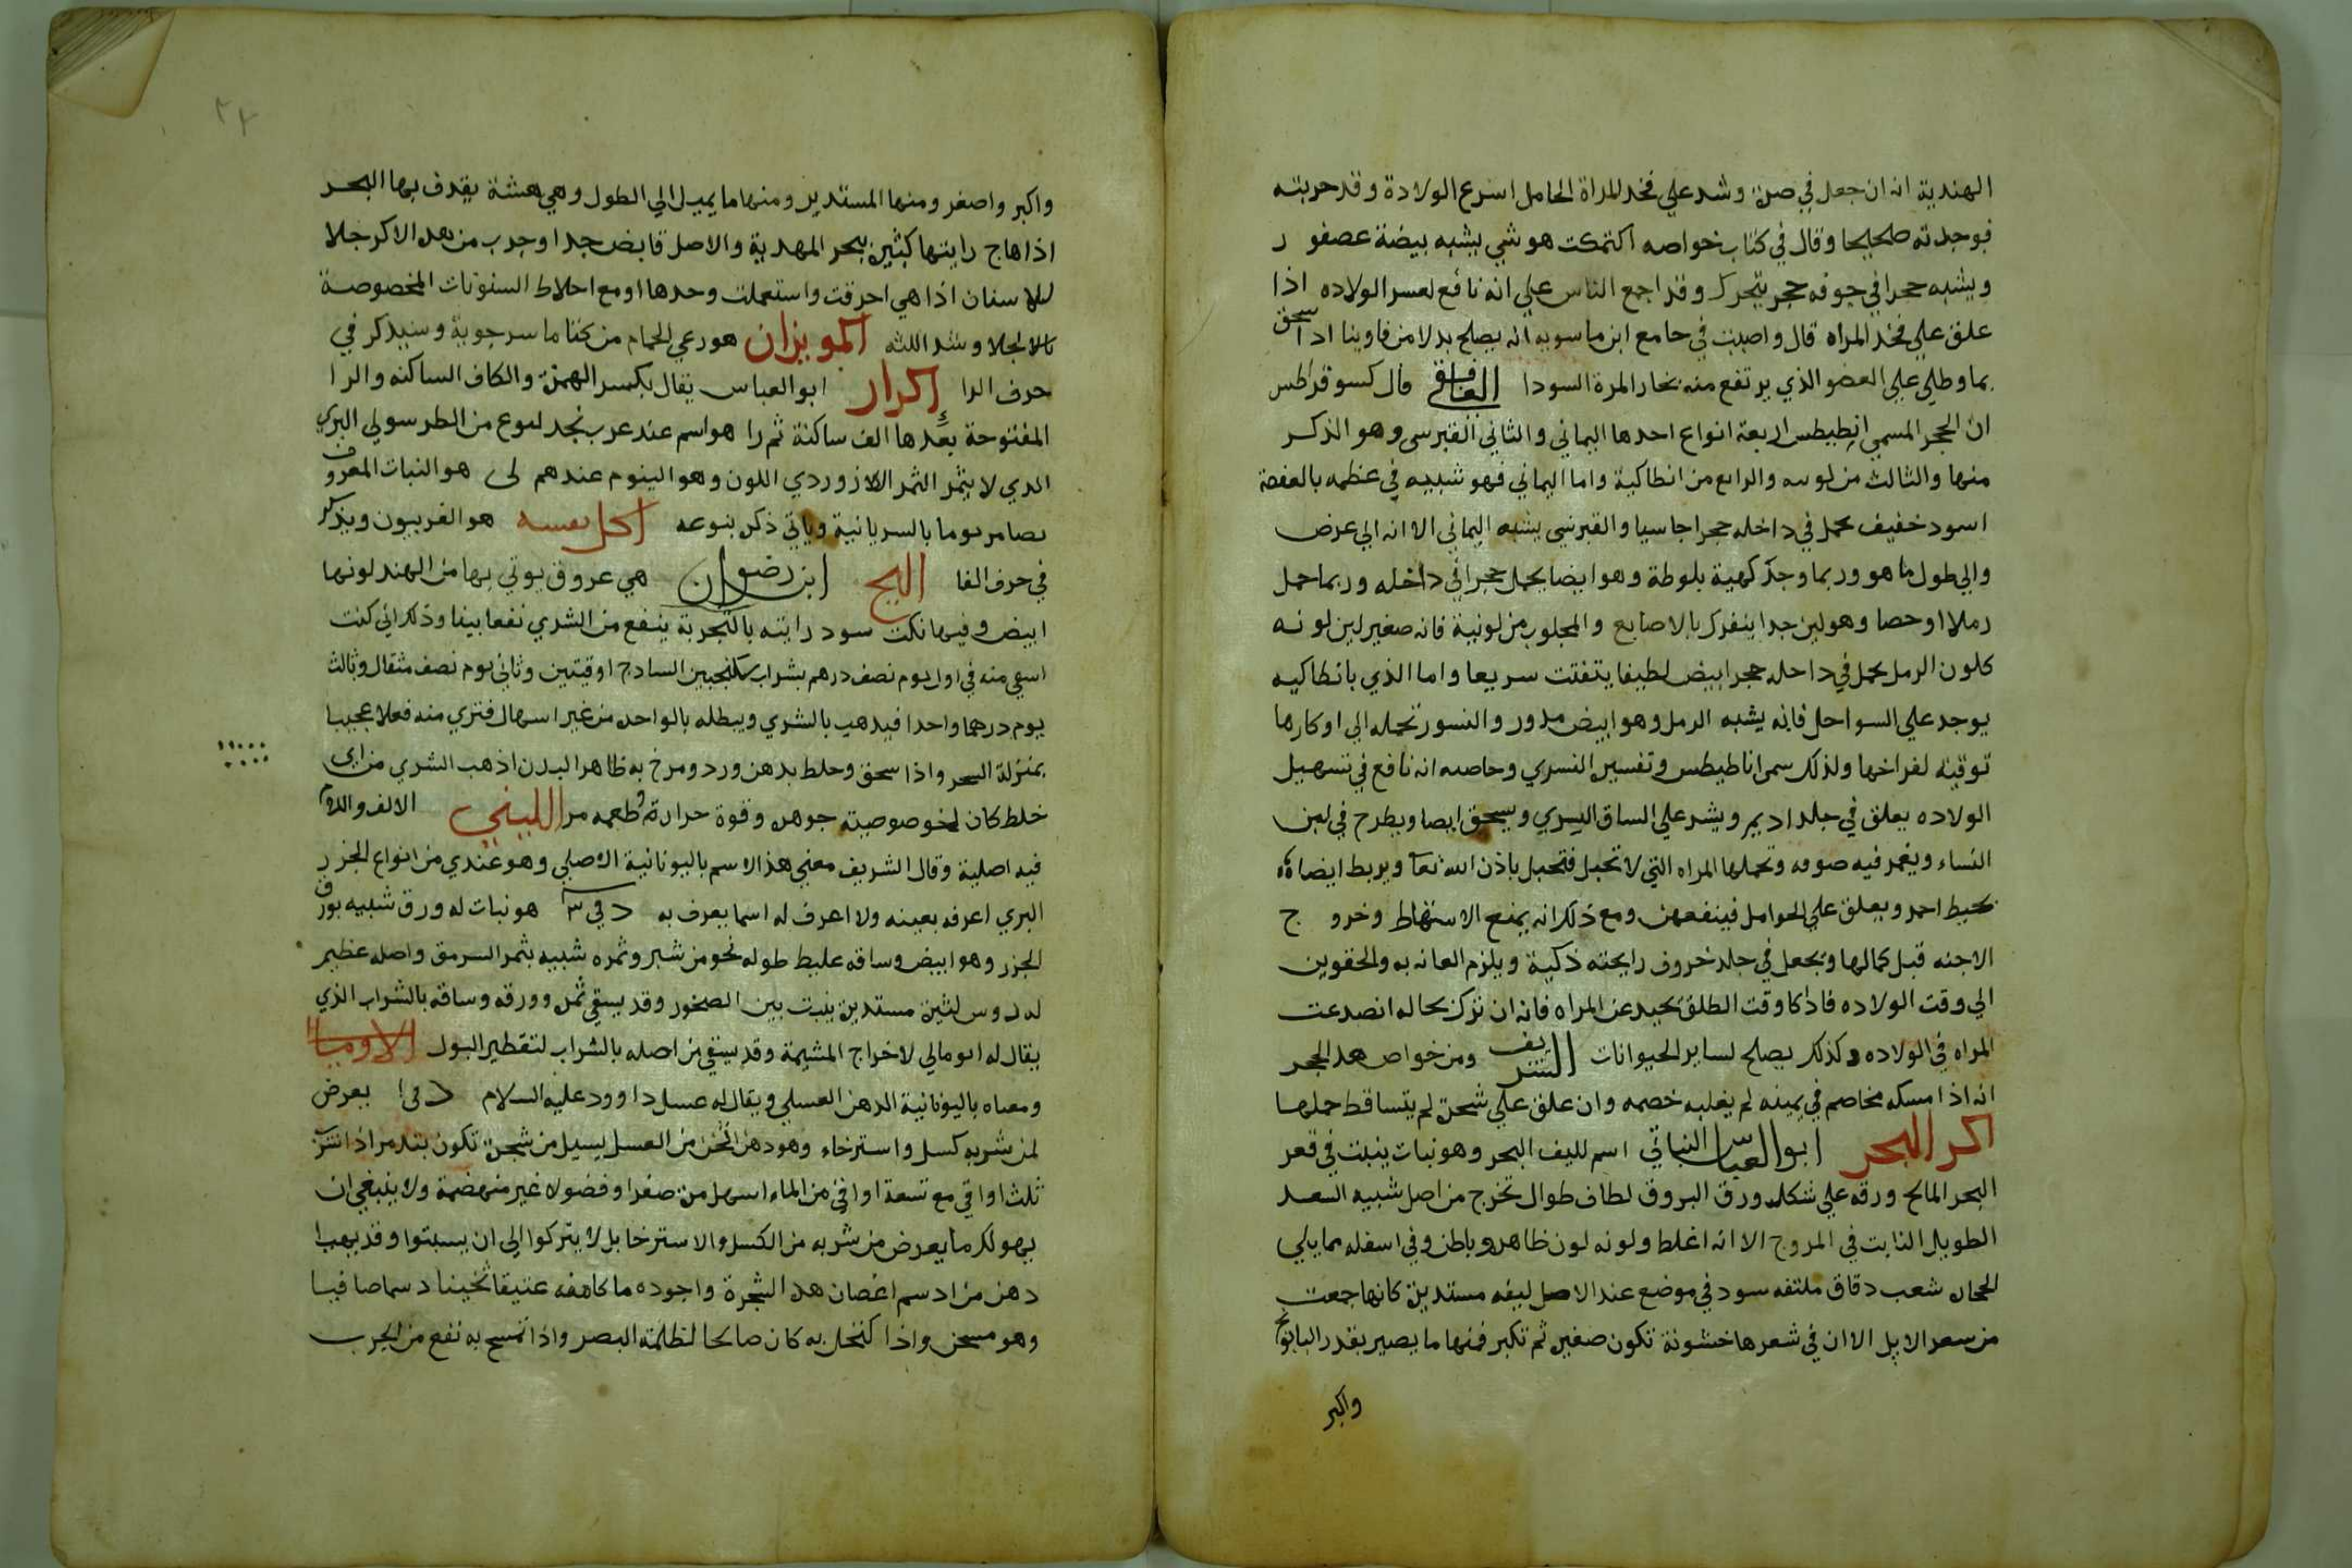 الهندية انه ان جعل في صرة وشد علي فخد المراة الحامل اسرع الولادة وقد جربته
فوجدته صحيحا وقال في كتاب خواصه اكتمكت هو شي يشبه بيضة عصفور
ويشبه حجرا في جوفه حجر يتحرك وقد اجمع الناس علي انه نافع لعسر الولاده اذا
علق علي فخد المراه قال واصبت في جامع ابن ماسويه انه يصلح بدلا من فاوينا اذا سحق
بما وطلي علي العضو الذي يرتفع منه بخار المرة السودا الغافقي قال كسوقراطس
ان الحجر المسمي انطيطس اربعة انواع احدها اليماني والثاني القبرسي وهو الذكر
منها والثالث من لوسه والرابع من انطاكية واما اليماني فهو شبيه في عظمه بالعفصة
اسود خفيف يحمل في داخله حجرا جاسيا والقبرسي يشبه اليماني الا انه الي عرض
والي طول ما هو وربما وجد كهية بلوطة وهو ايضا يحمل حجرا في داخله وربما حمل
رملا او حصا وهو لين جدا ينفرك بالاصابع والمجلوب من لونية فانه صغير لين لونه
كلون الرمل يحمل في داخله حجر ابيض لطيفا يتفتت سريعا واما الذي بانطاكيه
يوجد علي السواحل فانه يشبه الرمل وهو ابيض مدور والنسور تحمله الي اوكارها
توقية لفراخها ولذلك سمي اناطيطس وتفسيره النسري وخاصه انه نافع في تسهيل
الولاده يعلق في جلد اديم ويشد علي الساق اليسري ويسحق ايضا ويطرح في لبن
النساء ويغمر فيه صوفه وتحملها المراه التي لا تحبل فتحبل باذن الله تعا ويربط ايضا
بخيط احمر ويعلق علي الحوامل فينفعهن ومع ذلك انه يمنع الاسقاط وخروج
الاجنه قبل كمالها ويجعل في جلد خروف رايحته ذكية ويلزم العانه به والحقوين
الي وقت الولاده فاذا كا وقت الطلق يحيد عن المراه فانه ان ترك بحاله انصدعت
المراه في الولاده وكذلك يصلح لساير الحيوانات الشريف ومن خواص هذا الحجر
انه اذا امسكه مخاصم في يمينه لم يغلبه خصمه وان علق علي شجرة لم يتساقط حملها
اكر البحر ابو العباس النباتي اسم لليف البحر وهو نبات ينبت في قعر
البحر المالح ورقه علي شكل ورق البروق لطاف طوال تخرج من اصل شبيه السعد
الطويل النابت في المروج الا انه اغلظ ولونه لون ظاهره وباطن وفي اسفله مما يلي
الحجاره شعب دقاق ملتفه سود في موضع عند الاصل ليفه مستديرة كانها جمعت
من سعر الابل الا ان في شعرها خشونة تكون صغيره ثم تكبر فمنها ما يصير بقدر البابونج
واكبر
٢٢
واكبر واصغر ومنها المستدير ومنها ما يميل الي الطول وهي هشة يقدف بها البحر
اذا هاج رايتها كثيره ببحر المهدية والاصل قابض جدا وجرب من هده الاكر جلا
للاسفان اذا هي احرقت واستعملت وحدها او مع اخلاط السنونات المخصوصة
بالالجلا وشد اللثه اكموبزان هو رعي الحمام من كتا ماسرجوية وسيدكر في
حرف الرا إكرار ابو العباس يقال بكسر الهمزة والكاف الساكنه والرا
المفتوحة بعدها الف ساكنة ثم را هو اسم عند عرب نجد لنوع من الطرسولي البري
الدي لا يثمر الثمر اللازوردي اللون وهو الينوم عندهم لى هو النبات المعروف
بصامريوما بالسريانية وياتي ذكره بنوعه اكل نفسه هو الفربيون ويذكر
في حرف الفا البح ابن رضوان هي عروق يوتي بها من الهند لونها
ابيض وفيها نكت سود رايته بالتجربة ينفع من الشري نفعا بينا وذلك اني كنت
اسقي منه في اول يوم نصف درهم بشراب سكنجبين السادج اوقيتين وثاني يوم نصف مثقال وثالث
يوم درهما واحدا فيدهب بالشري ويبطله بالواحده من غير اسهال فتري منه فعلا عجيبا
بمنزلة السحر واذا سحق وخلط بدهن ورد ومرخ به ظاهر البدن اذهب الشري من اي
خلط كان لخوصوصيته جوهره وقوة حرارته وطعمه مر اللينبي الالف واللام
فيه اصلية وقال الشريف معني هذا الاسم باليونانية الاصلي وهو عندي من انواع الجزر
البري اعرفه بعينه ولا اعرف له اسما يعرف به د في ٣ هو نبات له ورق شبيه بورق
الجزر وهو ابيض وساقه غليظ طوله نحو من شبر وثمره شبيه بثمر السرمق واصله عظيم
له روس كثيرة مستديرة ينبت بين الصخور وقد يسقي ثمره وورقه وساقه بالشراب الذي
يقال له ابومالي لاخراج المشيمة وقد يسقي من اصله بالشراب لتقطير البول الاوميا
ومعناه باليونانية الدهن العسلي ويقال له عسل داوود عليه السلام د في ا يعرض
لمن شربه كسل واسترخاء وهو دهن اثخن من العسل يسيل من شجرة تكون بتدمر اذا شرب
ثلث اواقي مع تسعة اواقي من الماء اسهل مرة صفرا وفضولا غير منهضمة ولا ينبغي ان
يهولك ما يعرض من شربه من الكسل والاسترخا بل لا يتركوا الي ان يسبتوا وقد يهيا
دهن من دسم اغصان هده الشجرة واجوده ما كا منه عتيقا ثخينا دسما صافيا
وهو مسخن واذا اكتحل به كان صالحا لظلمة البصر واذا تمسح به نفع من الجرب